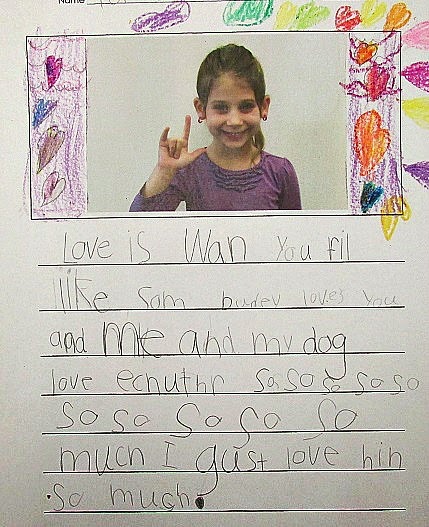 Name
Love is Wan you fil
like som budey loves you
and me and my dog
love echuthr so so so so so
so so so so so
much I gust love hin
so much.